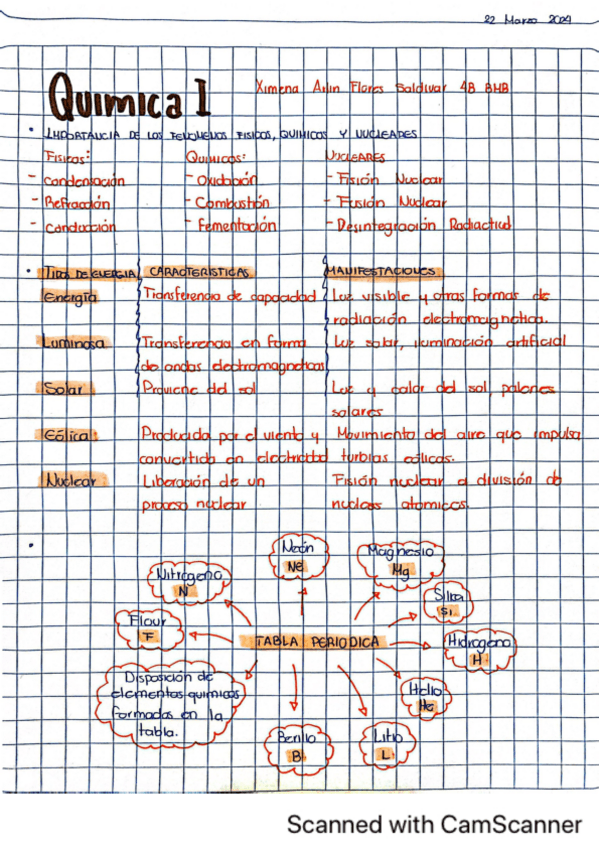 22 Marzo 2024
Quimica I
Ximena Arlin Flores Saldivar 4B BHB
• IMPORTANCIA DE LOS FENOMENOS FISICOS, QUIMICOS Y NUCLEARES
Fisicos: Quimicos: NUCLEARES
- Condensación - Oxidación - Fisión Nuclear
- Refracción - Combustión - Fusión Nuclear
- Conducción - Fementación - Desintegración Radiactiud
• TIPOS DE ENERGIA CARACTERISTICAS MANIFESTACIONES
Energía Transferencia de capacidad Luz visible y otras formas de
radiación electromagnetica.
Luminosa Transferencia en forma Luz solar, iluminación artificial
de ondas electromagneticas
Solar Proviene del sol Luz y calor del sol, palones
solares
Eólica Producida por el viento y Movimiento del aire que impulsa
convertida en electricidad turbias eólicas.
Nuclear Liberación de un Fisión nuclear o división de
proceso nuclear nucleos atomicos.
•
Neón
Ne
Magnesio
Mg
Nitrogeno
N
Silica
Si
Flour
F
TABLA PERIODICA
Hidrogeno
H
Disposición de
elementos quimicos
formados en la
tabla.
Helio
He
Berilio
B
Litio
L
Scanned with CamScanner